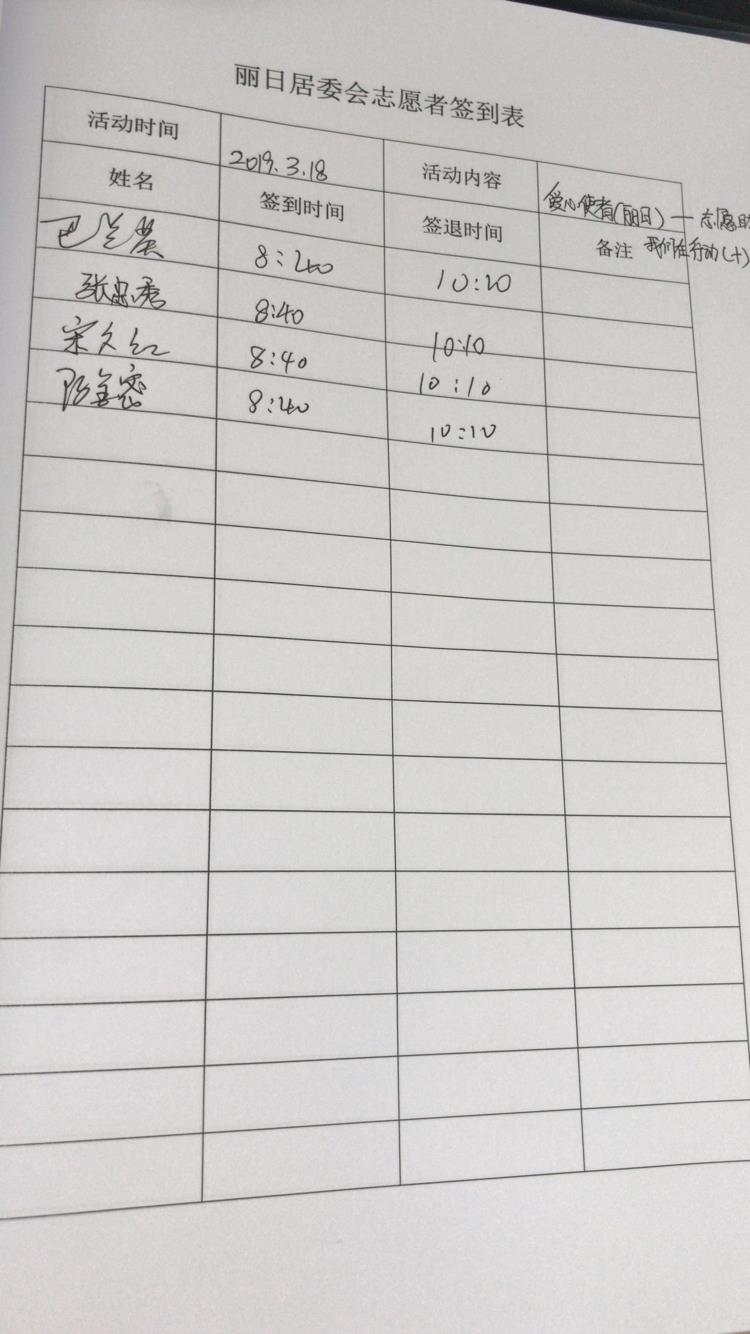 丽日居委会志愿者签到表
活动时间 2019.3.18 活动内容 爱心使者(丽日)一志愿助
我们在行动(十)
姓名 签到时间 签退时间 备注
8:40 10:20
张忠秀 8:40 10:10
宋久红 8:40 10:10
8:40 10:10